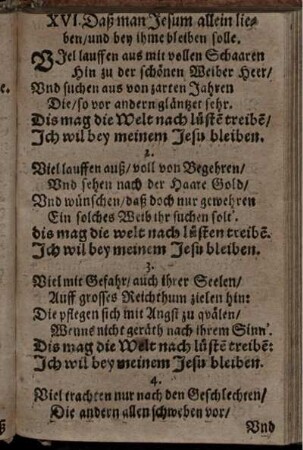 XVI. Daß man Jesum allein lie-
ben/und bey ihme bleiben solle.
VIel lauffen aus mit vollen Schaaren
Hin zu der schönen Weiber Heer/
Vnd suchen aus von zarten Jahren
Die/so vor andern gläntzet sehr.
Dis mag die Welt nach lüstē treibē/
Ich wil bey meinem Jesu bleiben.
2.
Viel lauffen auß/ voll von Begehren/
Vnd sehen nach der Haare Gold/
Vnd wünschen/daß doch nur gewehren
Ein solches Weib ihr suchen solt'.
dis mag die welt nach lüstē treibē.
Ich wil bey meinem Jesu bleiben.
3.
Viel mit Gefahr/auch ihrer Seelen/
Auff grosses Reichthum zielen hin:
Die pflegen sich mit Angst zu qvälen/
Wenns nicht geräth nach ihrem Sinn'.
Dis mag die Welt nach lüstē treibē:
Ich wil bey meinem Jesu bleiben.
4.
Viel trachten nur nach den Geschlechten/
Die andern allen schweben vor/
Vnd